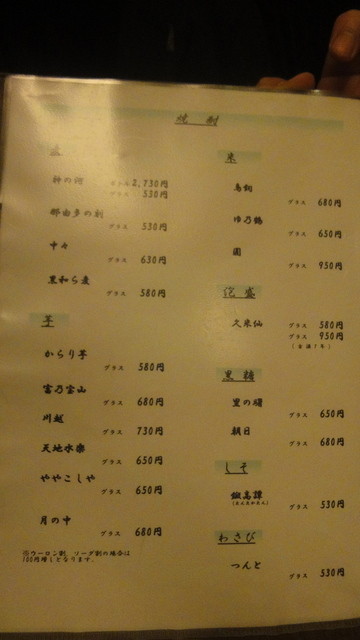 焼酎
麦
神の河 ボトル2,730円
グラス 530円
那由多の刻
グラス 530円
中々
グラス 630円
里和ら麦
グラス 580円
芋
からり芋
グラス 580円
富乃宝山
グラス 680円
川越
グラス 730円
天地水楽
グラス 650円
ややこしや
グラス 650円
月の中
グラス 680円
※ウーロン割、ソーダ割の場合は
100円増しとなります。
米
鳥飼
グラス 680円
ゆ乃鶴
グラス 650円
園
グラス 950円
泡盛
久米仙
グラス 580円
グラス 950円
黒糖
里の曙
グラス 650円
朝日
グラス 680円
しそ
鍛高譚
(たんたかたん)
グラス 530円
わさび
つんと
グラス 530円